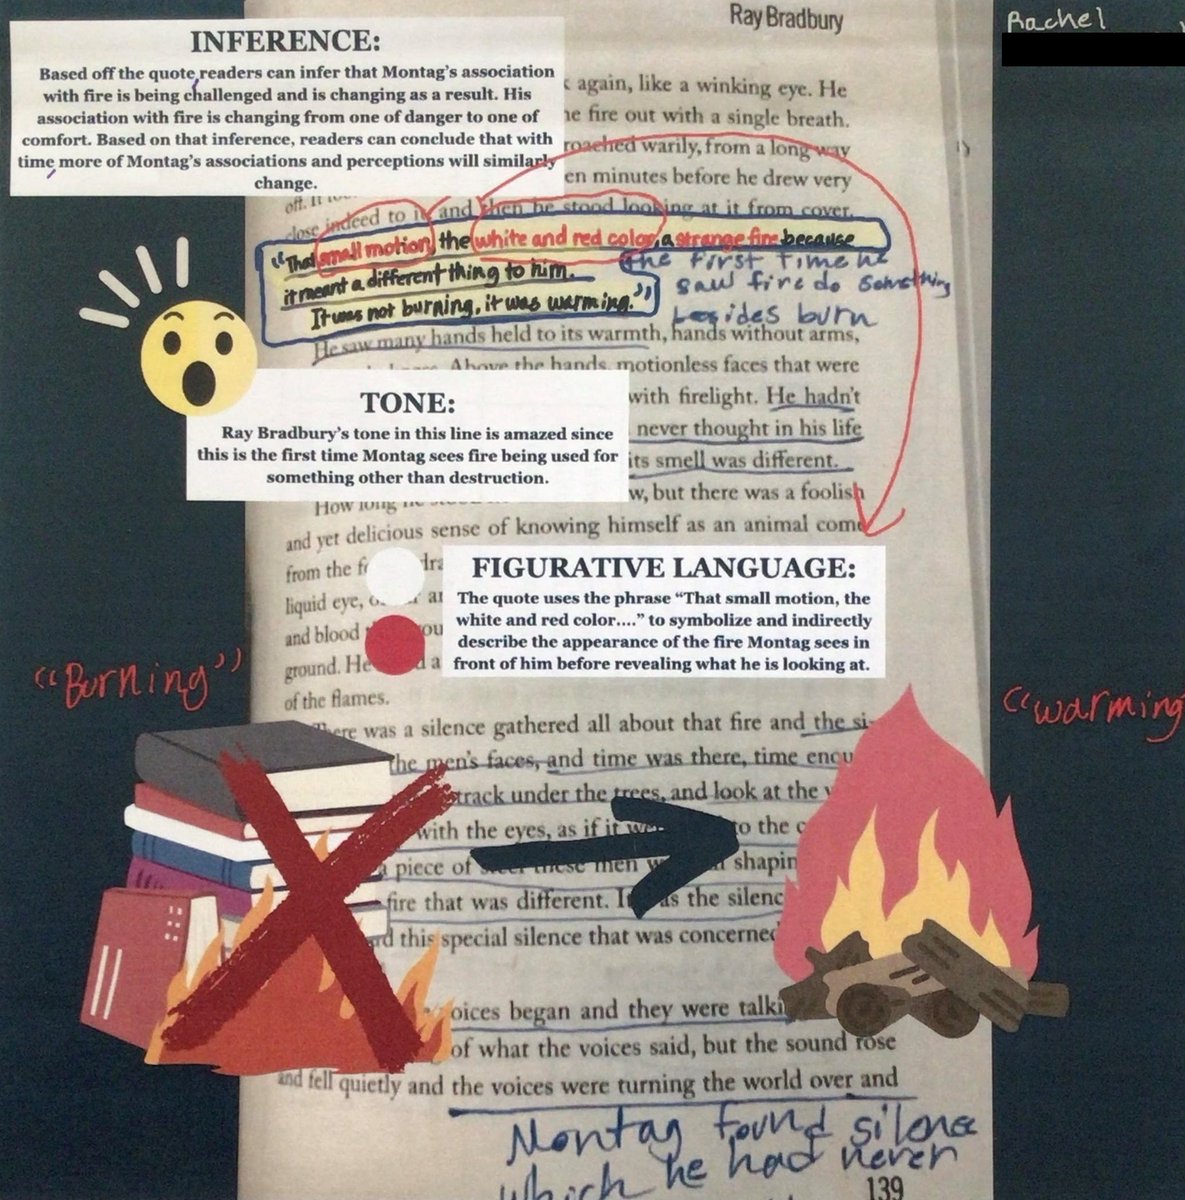 Ray Bradbury
Rachel
INFERENCE:
Based off the quote, readers can infer that Montag's association
with fire is being challenged and is changing as a result. His
association with fire is changing from one of danger to one of
comfort. Based on that inference, readers can conclude that with
time, more of Montag's associations and perceptions will similarly
change.
again, like a winking eye. He
fire out with a single breath.
warily, from a long way
minutes before he drew very
off. It
close indeed to it and then he stood looking at it from cover.
"That small motion, the white and red color, a strange fire because
it meant a different thing to him.
It was not burning, it was warming."
the first time he
saw fire do something
besides burn
He saw many hands held to its warmth, hands without arms,
Above the hands, motionless faces that were
with firelight. He hadn't
never thought in his life
its smell was different.
TONE:
Ray Bradbury's tone in this line is amazed since
this is the first time Montag sees fire being used for
something other than destruction.
How long he
but there was a foolish
and yet delicious sense of knowing himself as an animal come
from the
liquid eye,
and blood
ground. He a
of the flames.
FIGURATIVE LANGUAGE:
The quote uses the phrase "That small motion, the
white and red color...." to symbolize and indirectly
describe the appearance of the fire Montag sees in
front of him before revealing what he is looking at.
"Burning"
"warming
was a silence gathered all about that fire and the si-
the men's faces, and time was there, time
track under the trees, and look at the
with the eyes, as if it to the
a piece of steel these men
fire that was different. It the
this special silence that was concerned
voices began and they were
of what the voices said, but the sound rose
and fell quietly and the voices were turning the world over and
Montag found silence
which he had never
139